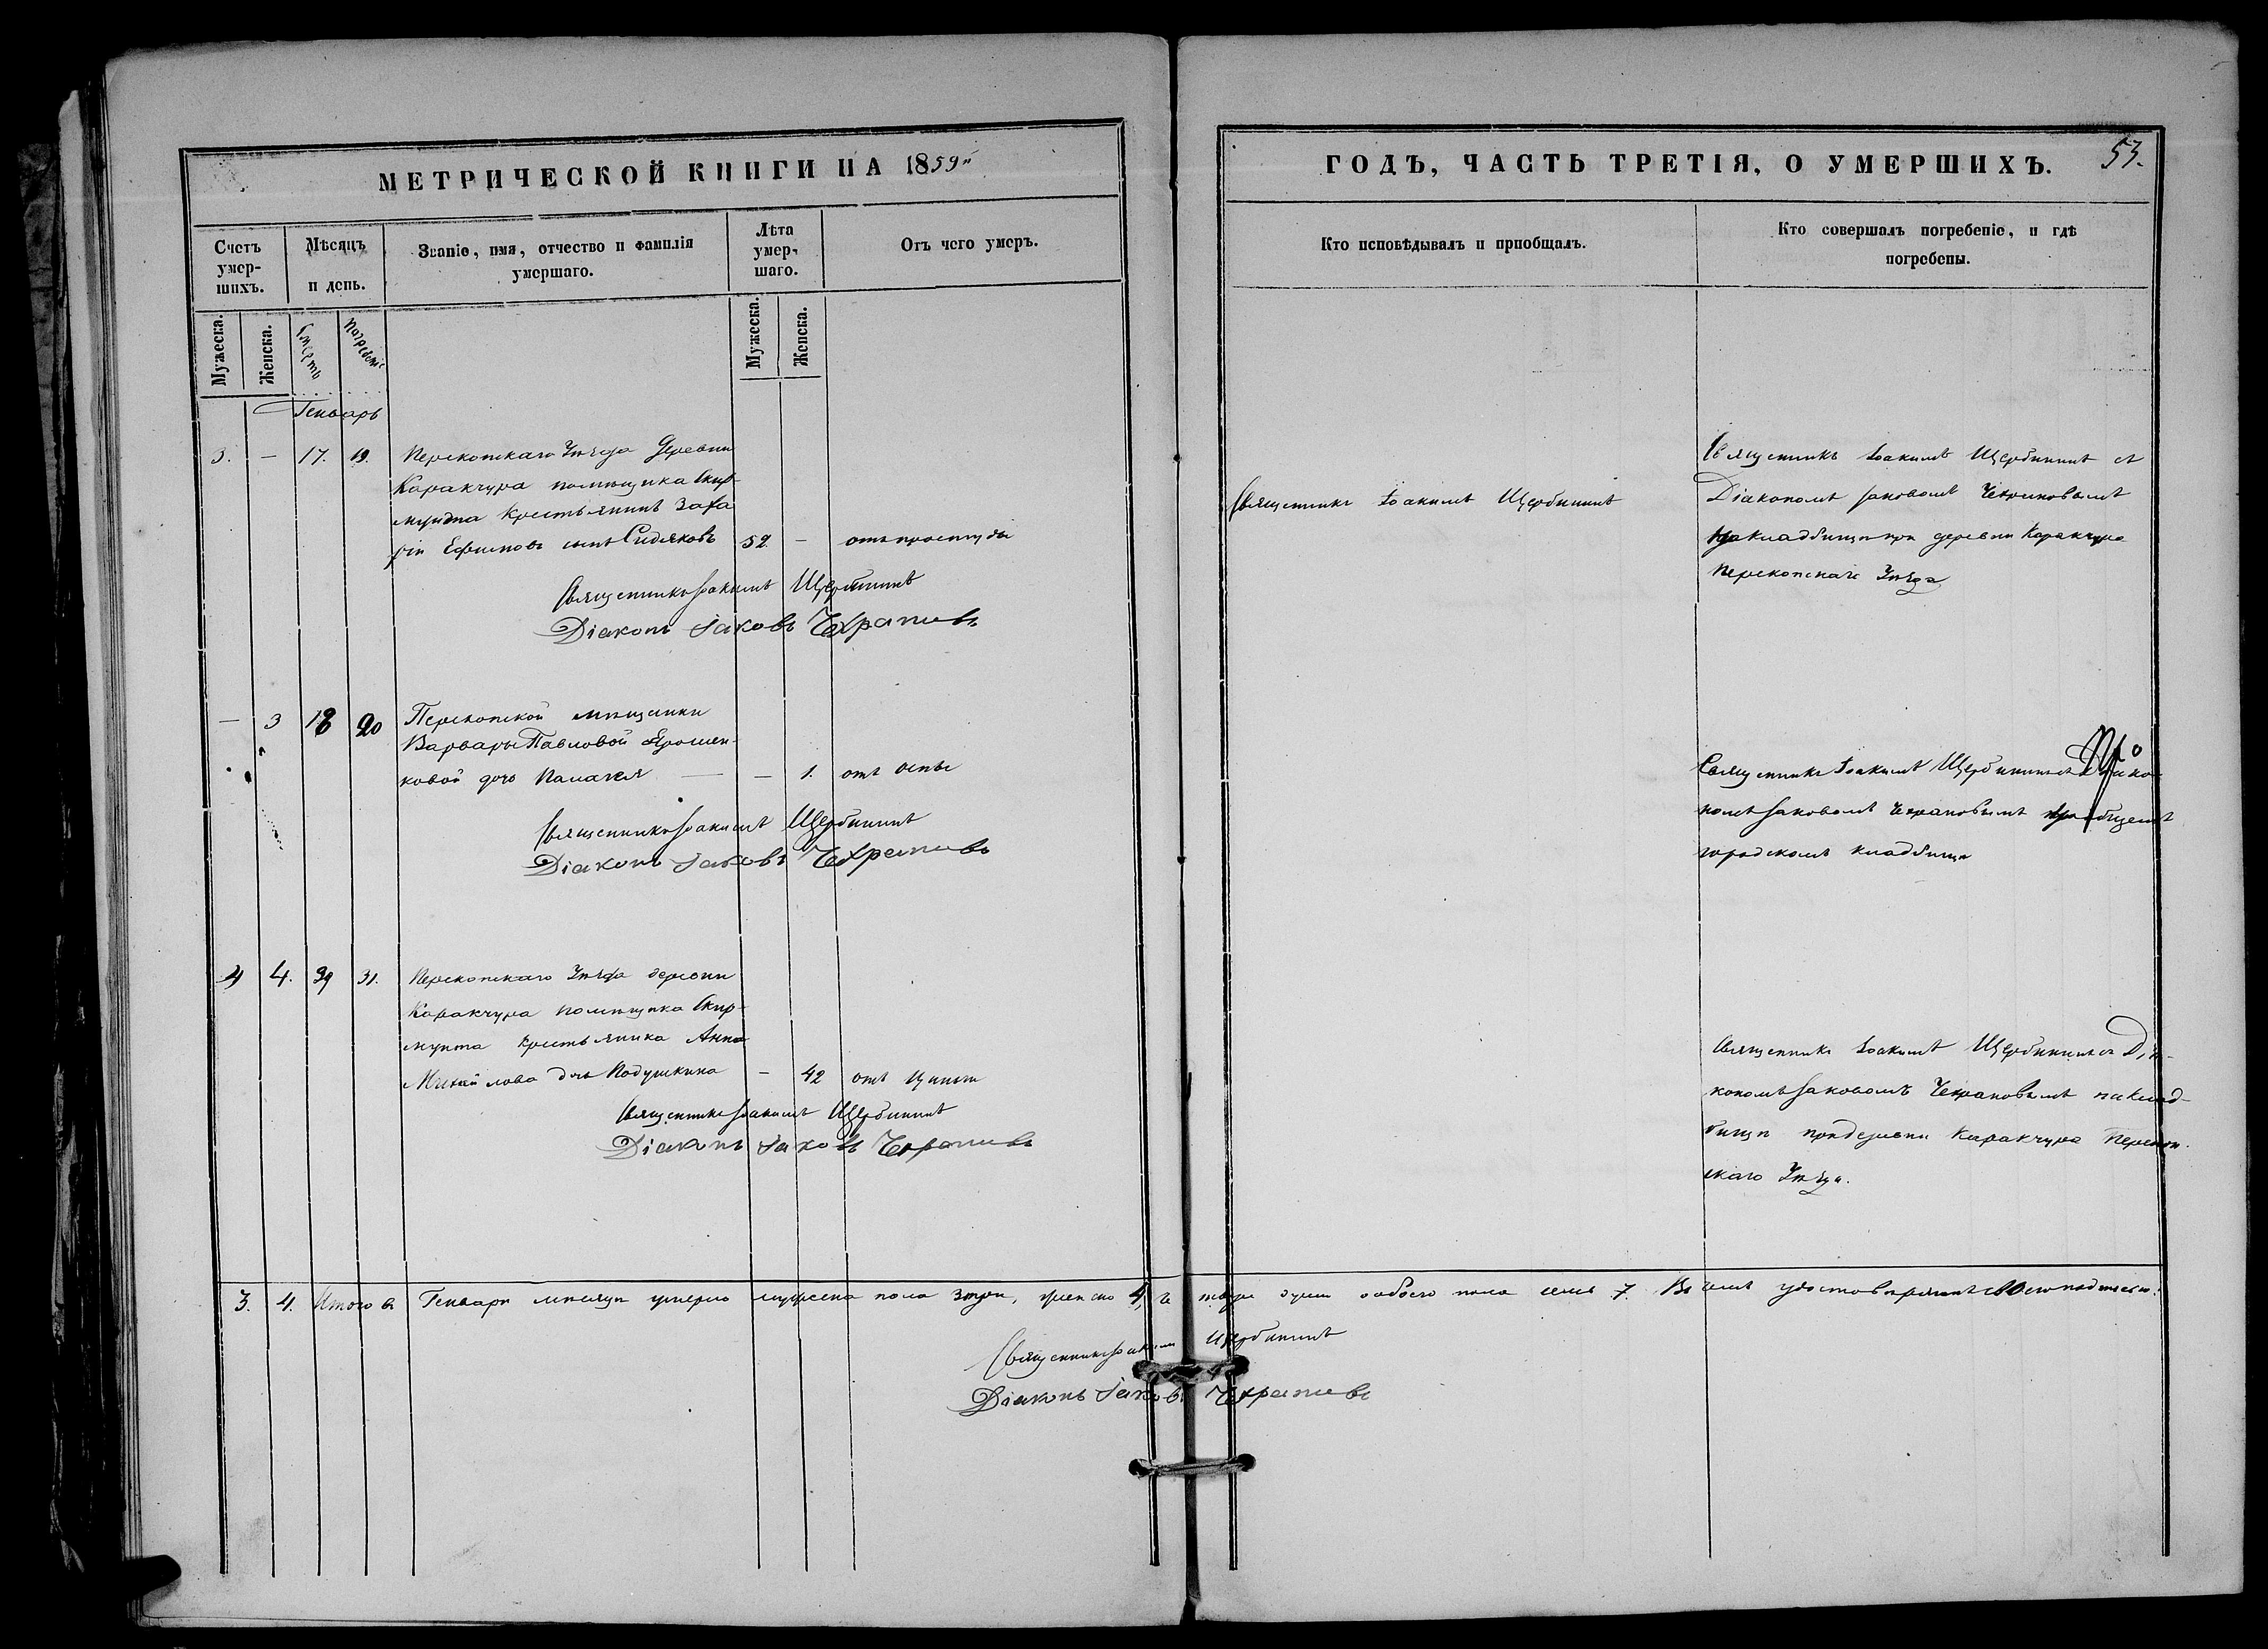 МЕТРИЧЕСКОЙ КНИГИ НА 1859
Счетъ умер-шихъ.
Мѣсяцъ и день.
Званіе, имя, отчество и фамилія умершаго.
Лѣта умер-шаго.
Отъ чего умеръ.
Мужеска.
Женска.
Смерть
Погребеніе
Мужеска.
Женска.
Генварь
3. — 17. 19. Перекопскаго Уѣзда Деревни
Каракчура помѣщика Скир-
мунта Крестьянинъ Заха
рій Ефимовъ сынъ Сидяковъ 52 — отъ простуды
Священникъ Іоакимъ Щербининъ
Діаконъ Іаковъ Чехрановъ
— 3 18 20 Перекопской мѣщанки
Варвары Павловой Ярошен-
ковой дочь Палагея — — 1. отъ оспы
Священникъ Іоакимъ Щербининъ
Діаконъ Іаковъ Чехрановъ
4. 29 31. Перекопскаго Уѣзда деревни
Каракчура помѣщика Скир-
мунта крестьянка Анна
Михайлова дчь Подушкина — 42 отъ цынги
Священникъ Іоакимъ Щербининъ
Діаконъ Іаковъ Чехрановъ
3. 4. Итого въ Генварѣ мѣсяцѣ умерло мужеска пола 3 три, женска 4, че
Священникъ Іоакимъ Щербининъ
Діаконъ Іаковъ Чехрановъ
ГОДЪ, ЧАСТЬ ТРЕТІЯ, О УМЕРШИХЪ. 53.
Кто исповѣдывалъ и пріобщалъ.
Кто совершалъ погребеніе, и гдѣ погребены.
Священникъ Іоакимъ Щербининъ
Священникъ Іоакимъ Щербининъ съ
Діакономъ Іаковомъ Чехрановымъ
на кладбищѣ при деревни Каракчура
Перекопскаго Уѣзда
Священникъ Іоакимъ Щербининъ съ Діако-
номъ Іаковомъ Чехрановымъ
городскомъ кладбищѣ
Священникъ Іоакимъ Щербининъ съ Діа-
кономъ Іаковомъ Чехрановымъ на клад-
бищѣ при деревни Каракчура Перекоп-
скаго Уѣзда.
тыре души обоего пола семь 7. Въ чемъ удостовѣряемъ своею подписью.